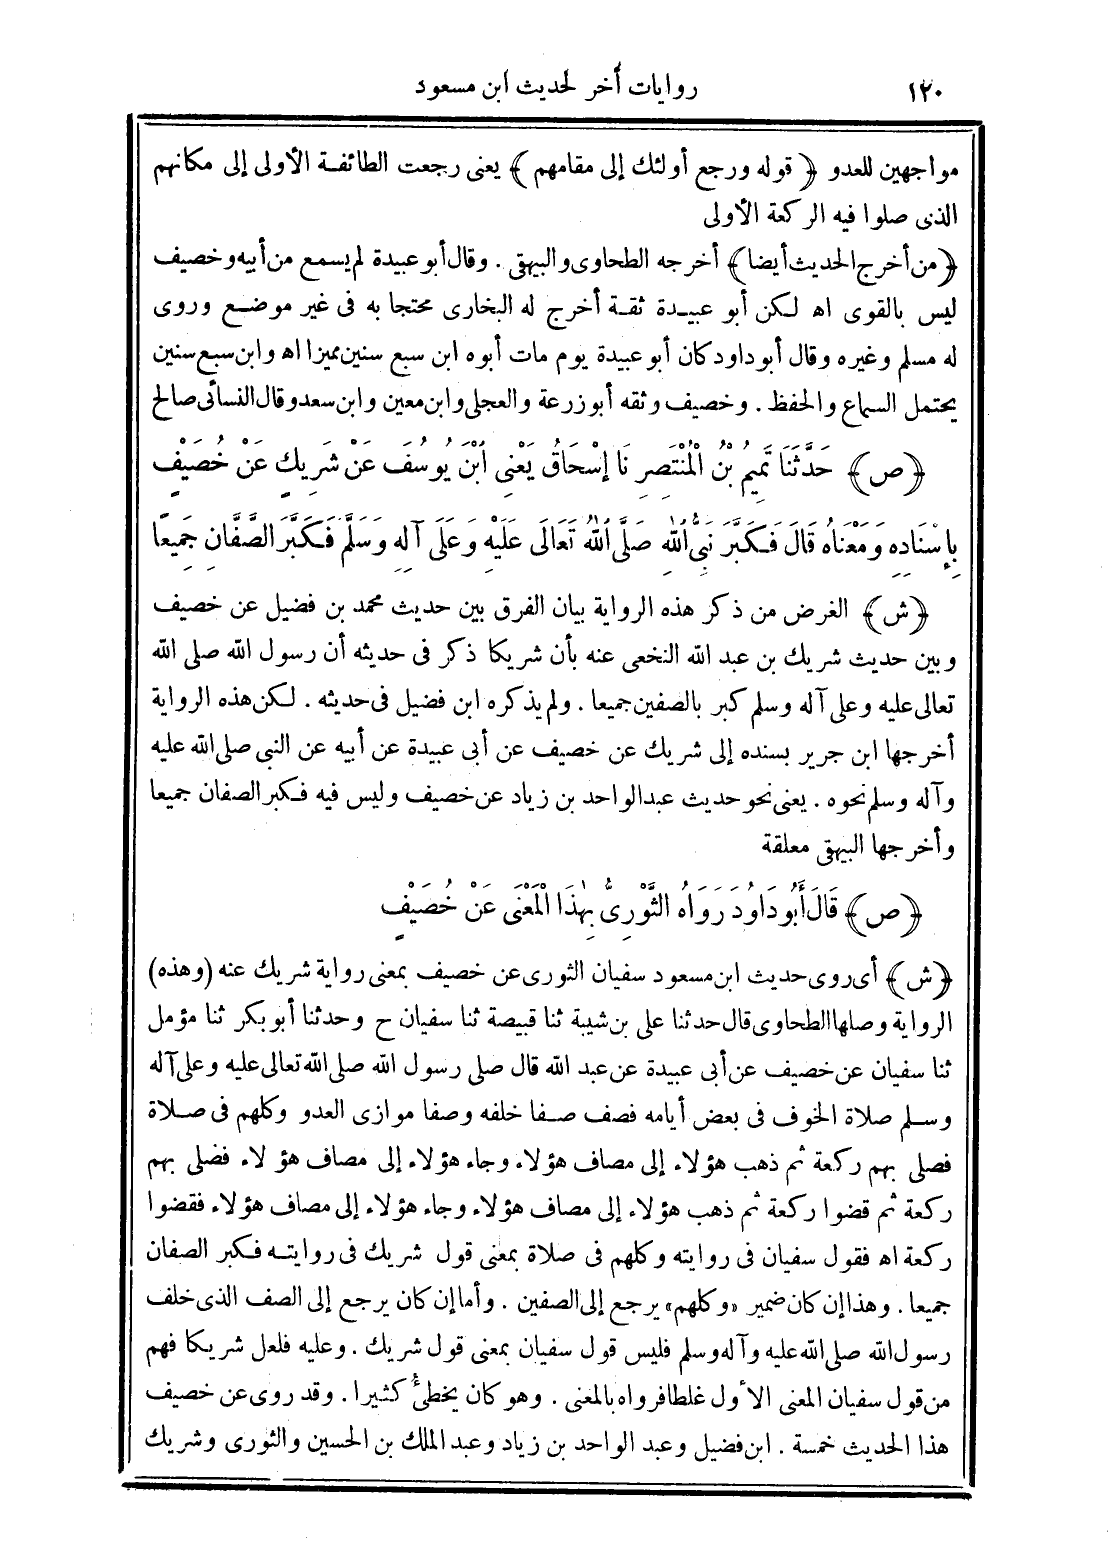 ١٢٠
روايات أخر لحديث ابن مسعود
مواجهين للعدو ﴿ قوله ورجع أولئك إلى مقامهم ﴾ يعنى رجعت الطائفة الأولى إلى مكانهم
الذى صلوا فيه الركعة الأولى
﴿من أخرج الحديث أيضا﴾ أخرجه الطحاوى والبيهقى . وقال أبو عبيدة لم يسمع من أبيه وخصيف
ليس بالقوى اه لكن أبو عبيدة ثقة أخرج له البخارى محتجا به فى غير موضع وروى
له مسلم وغيره وقال أبو داود كان أبو عبيدة يوم مات أبوه ابن سبع سنين مميزا اه وابن سبع سنين
يحتمل السماع والحفظ . وخصيف وثقه أبو زرعة والعجلى وابن معين وابن سعد وقال النسائى صالح
﴿ص﴾ حَدَّثَنَا تَمِيمُ بْنُ الْمُنْتَصِرِ نَا إِسْحَاقُ يَعْنِى ابْنَ يُوسُفَ عَنْ شَرِيكٍ عَنْ خُصَيْفٍ
بِإِسْنَادِهِ وَمَعْنَاهُ قَالَ فَكَبَّرَ نَبِىُّ اللهِ صَلَّى اللهُ تَعَالَى عَلَيْهِ وَعَلَى آلِهِ وَسَلَّمَ فَكَبَّرَ الصَّفَّانِ جَمِيعًا
﴿ش﴾ الغرض من ذكر هذه الرواية بيان الفرق بين حديث محمد بن فضيل عن خصيف
وبين حديث شريك بن عبد الله النخعى عنه بأن شريكا ذكر فى حديثه أن رسول الله صلى الله
تعالى عليه وعلى آله وسلم كبر بالصفين جميعا . ولم يذكره ابن فضيل فى حديثه . لكن هذه الرواية
أخرجها ابن جرير بسنده إلى شريك عن خصيف عن أبى عبيدة عن أبيه عن النبى صلى الله عليه
وآله وسلم نحوه . يعنى نحو حديث عبد الواحد بن زياد عن خصيف وليس فيه فكبر الصفان جميعا
وأخرجها البيهقى معلقة
﴿ص﴾ قَالَ أَبُو دَاوُدَ رَوَاهُ الثَّوْرِىُّ بِهٰذَا الْمَعْنَى عَنْ خُصَيْفٍ
﴿ش﴾ أى روى حديث ابن مسعود سفيان الثورى عن خصيف بمعنى رواية شريك عنه (وهذه)
الرواية وصلها الطحاوى قال حدثنا على بن شيبة ثنا قبيصة ثنا سفيان ح وحدثنا أبو بكر ثنا مؤمل
ثنا سفيان عن خصيف عن أبى عبيدة عن عبد الله قال صلى رسول الله صلى الله تعالى عليه وعلى آله
وسلم صلاة الخوف فى بعض أيامه فصف صفا خلفه وصفا موازى العدو وكلهم فى صلاة
فصلى بهم ركعة ثم ذهب هؤلاء إلى مصاف هؤلاء وجاء هؤلاء إلى مصاف هؤلاء فصلى بهم
ركعة ثم قضوا ركعة ثم ذهب هؤلاء إلى مصاف هؤلاء وجاء هؤلاء إلى مصاف هؤلاء فقضوا
ركعة اه فقول سفيان فى روايته وكلهم فى صلاة بمعنى قول شريك فى روايته فكبر الصفان
جميعا . وهذا إن كان ضمير «وكلهم» يرجع إلى الصفين . وأما إن كان يرجع إلى الصف الذى خلف
رسول الله صلى الله عليه وآله وسلم فليس قول سفيان بمعنى قول شريك . وعليه فلعل شريكا فهم
من قول سفيان المعنى الأول غلطا فرواه بالمعنى . وهو كان يخطئ كثيرا . وقد روى عن خصيف
هذا الحديث خمسة . ابن فضيل وعبد الواحد بن زياد وعبد الملك بن الحسين والثورى وشريك